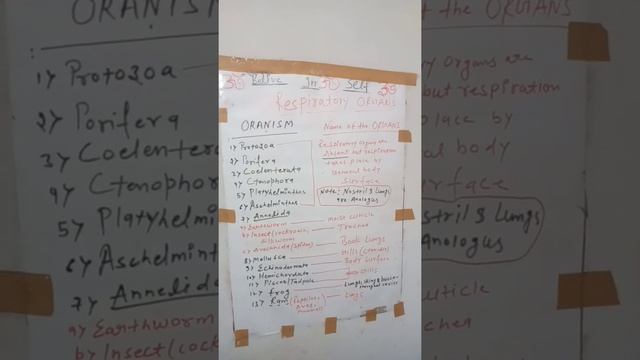 ॐ Belive In ॐ Self ॐ
Respiratory ORGANS
ORANISM
Name of the ORGANS
1) Protozoa
2) Porifera
3) Coelenterata
4) Ctenophora
5) Platyhelminthes
6) Aschelminthes
7) Annelida
Respiratory organs are
Absent but respiration
takes place by
general body
surface
Note: Nostril & Lungs
are Analogus
a) Earthworm moist cuticle
b) Insect (cockroach, Trachea
silkworm)
c) Arachnida (spider) Book Lungs
8) Mollusca Gills (ctenidia)
9) Echinodermata Body surface
10) Hemichordata Gills
11) Pisces/Tadpole
12) Frog
13) Ram (Reptiles, Lungs
Aves,
ORANISM
1) Protozoa
2) Porifera
3) Coelentera
4) Ctenophora
5) Platyhelmin
6) Aschelmint
7) Annelida
a) Earthworm
b) Insect (cock
of the ORGANS
ry organs are
but respiration
place by
body
rface
stril & Lungs
Analogus
cuticle